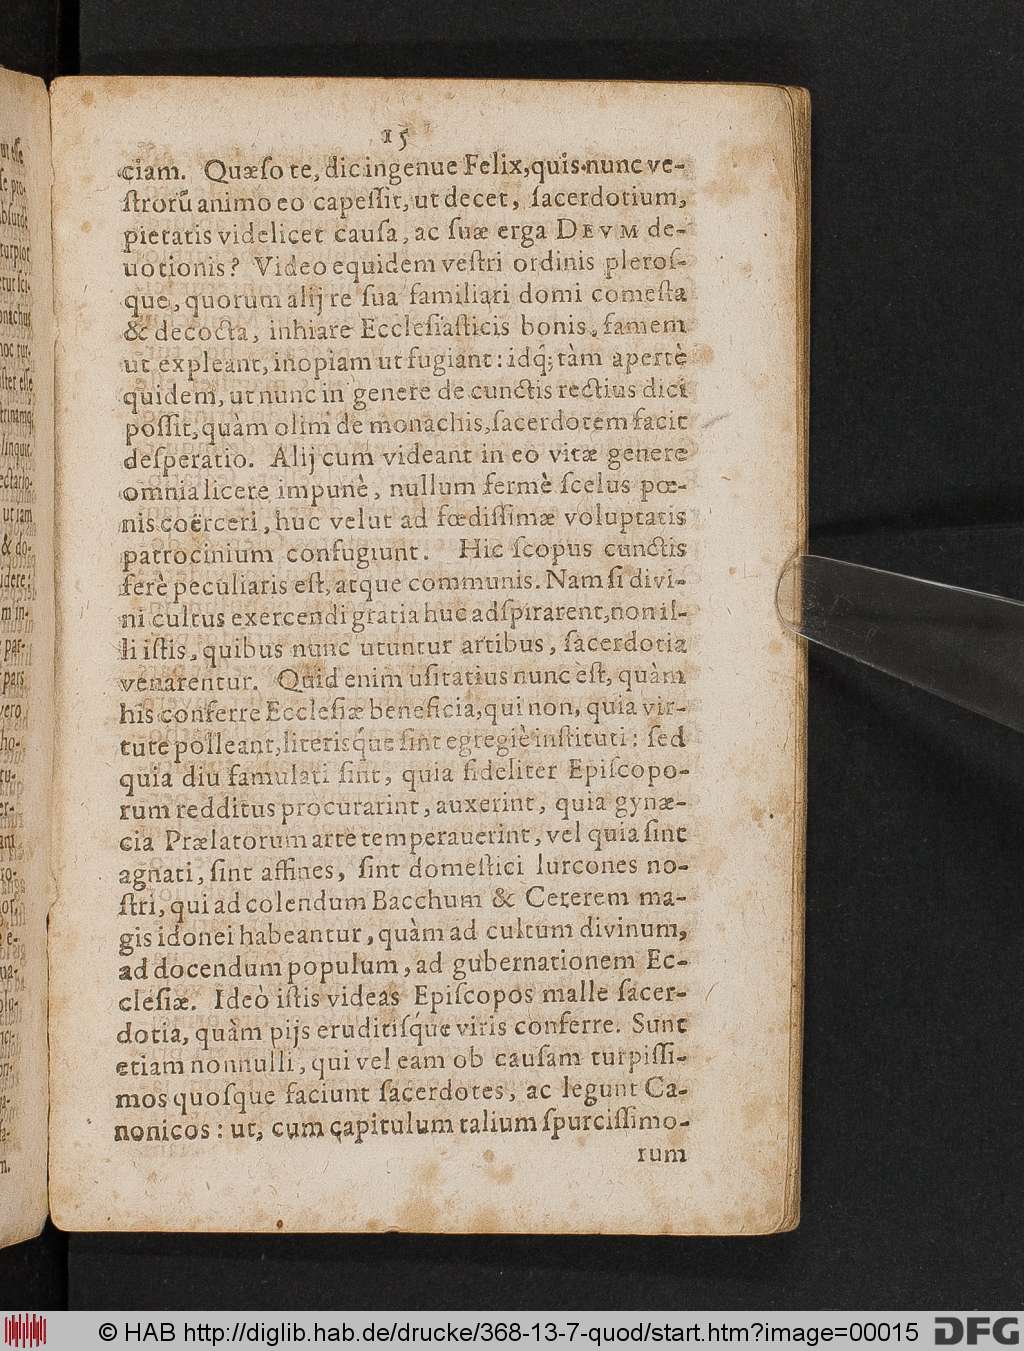 15
ciam. Quæſo te, dic ingenue Felix, quis nunc ve-
ſtrorũ animo eo capeſſit, ut decet, ſacerdotium,
pietatis videlicet cauſa, ac ſuæ erga DEVM de-
uotionis? Video equidem veſtri ordinis pleroſ-
que, quorum alij re ſua familiari domi comeſta
& decocta, inhiare Eccleſiaſticis bonis, famem
ut expleant, inopiam ut fugiant: idq́; tàm apertè
quidem, ut nunc in genere de cunctis rectius dici
poſſit, quàm olim de monachis, ſacerdotem facit
deſperatio. Alij cum videant in eo vitæ genere
omnia licere impunè, nullum fermè ſcelus pœ-
nis coërceri, huc velut ad fœdiſſimæ voluptatis
patrocinium confugiunt. Hic ſcopus cunctis
ferè peculiaris eſt, atque communis. Nam ſi divi-
ni cultus exercendi gratia huc adſpirarent, non il-
li iſtis, quibus nunc utuntur artibus, ſacerdotia
venarentur. Quid enim uſitatius nunc eſt, quàm
his conferre Eccleſiæ beneficia, qui non, quia vir-
tute polleant, literisq́ue ſint egregiè inſtituti: ſed
quia diu famulati ſint, quia fideliter Epiſcopo-
rum redditus procurarint, auxerint, quia gynæ-
cia Prælatorum arte temperauerint, vel quia ſint
agnati, ſint affines, ſint domeſtici lurcones no-
ſtri, qui ad colendum Bacchum & Cererem ma-
gis idonei habeantur, quàm ad cultum divinum,
ad docendum populum, ad gubernationem Ec-
cleſiæ. Ideò iſtis videas Epiſcopos malle ſacer-
dotia, quàm pijs eruditiſq́ue viris conferre. Sunt
etiam nonnulli, qui vel eam ob cauſam turpiſſi-
mos quoſque faciunt ſacerdotes, ac legunt Ca-
nonicos: ut, cum capitulum talium ſpurciſſimo-
rum
© HAB http://diglib.hab.de/drucke/368-13-7-quod/start.htm?image=00015
DFG